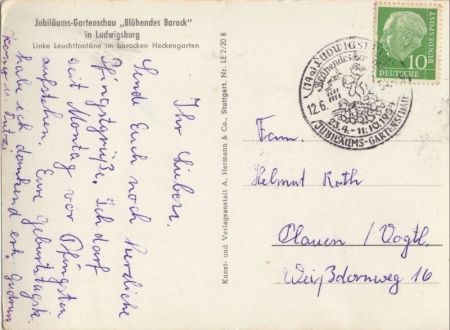 Jubiläums-Gartenschau „Blühendes Barock"
in Ludwigsburg
Linke Leuchtfontäne im barocken Heckengarten
Ihr Lieben.
Sende Euch noch herzliche
Pfingstgrüße. Ich darf
seit Montag vor Pfingsten
aufstehen. Eure Geburtstagsk.
habe ich dankend erh. Gudrun
Kunst- und Verlagsanstalt A. Hermann & Co., Stuttgart. Nr. LE 2/20 B
DEUTSCHE
BUNDESPOST
10
(14a) LUDWIGSBURG
Blühendes Barock
12.6.
23.4.-11.10.1954
JUBILÄUMS-GARTENSCHAU
Fam.
Helmut Roth
Plauen / Vogtl.
Weißdornweg 16